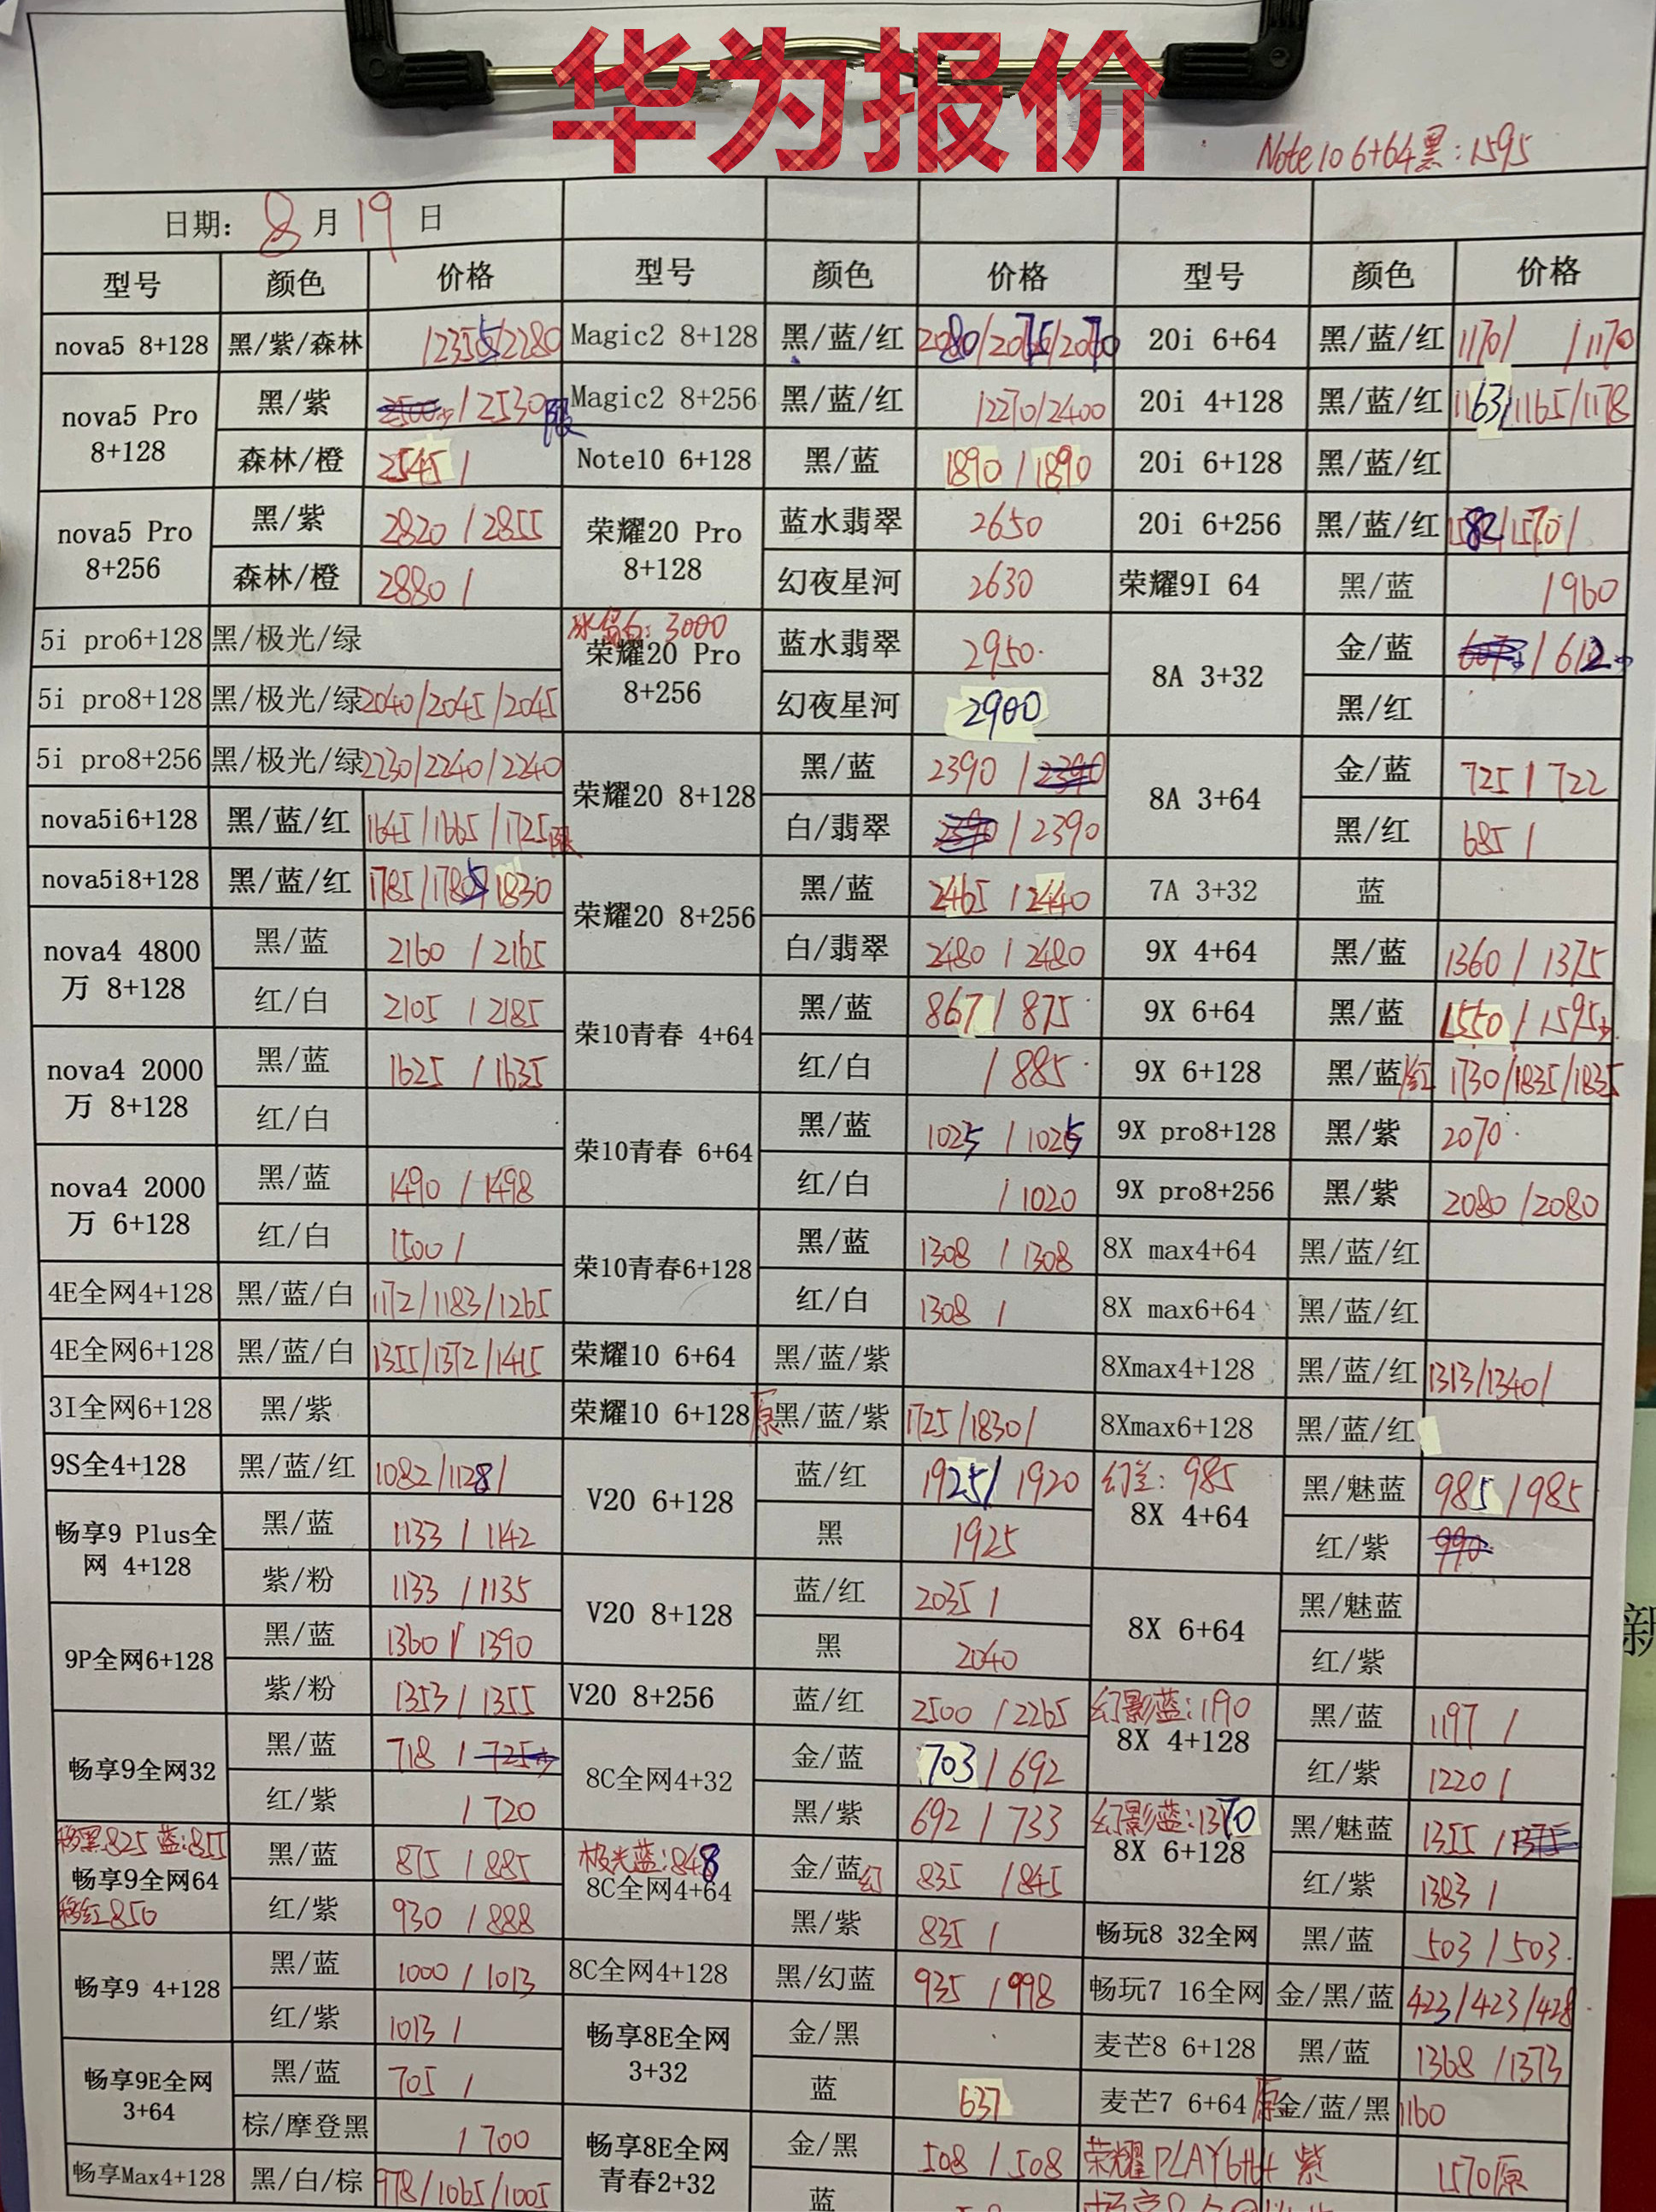 华为报价
Note10 6+64黑:1595
日期: 8月19日
型号 颜色 价格 型号 颜色 价格 型号 颜色 价格
nova5 8+128 黑/紫/森林 /2355/2280
nova5 Pro 8+128 黑/紫 /2530限
森林/橙 2545/
nova5 Pro 8+256 黑/紫 2820/2855
森林/橙 2880/
5i pro6+128 黑/极光/绿
5i pro8+128 黑/极光/绿 2040/2045/2045
5i pro8+256 黑/极光/绿 2230/2240/2240
nova5i6+128 黑/蓝/红 1645/1665/1725限
nova5i8+128 黑/蓝/红 1785/1785/1830
nova4 4800万 8+128 黑/蓝 2160/2165
红/白 2105/2185
nova4 2000万 8+128 黑/蓝 1625/1635
红/白
nova4 2000万 6+128 黑/蓝 1490/1498
红/白 1500/
4E全网4+128 黑/蓝/白 1172/1183/1265
4E全网6+128 黑/蓝/白 1355/1372/1415
3I全网6+128 黑/紫
9S全4+128 黑/蓝/红 1082/1128/
畅享9 Plus全网 4+128 黑/蓝 1133/1142
紫/粉 1133/1135
9P全网6+128 黑/蓝 1360/1390
紫/粉 1353/1355
畅享9全网32 黑/蓝 718/725
红/紫 /720
移黑825 蓝:855
畅享9全网64 黑/蓝 875/885
移红850 红/紫 930/888
畅享9 4+128 黑/蓝 1000/1013
红/紫 1013/
畅享9E全网 3+64 黑/蓝 705/
棕/摩登黑 /700
畅享Max4+128 黑/白/棕 978/1065/1005
Magic2 8+128 黑/蓝/红 2080/2075/2070
Magic2 8+256 黑/蓝/红 /2270/2400
Note10 6+128 黑/蓝 1890/1890
荣耀20 Pro 8+128 蓝水翡翠 2650
幻夜星河 2630
冰岛白:3000
荣耀20 Pro 8+256 蓝水翡翠 2950
幻夜星河 2900
荣耀20 8+128 黑/蓝 2390/2390
白/翡翠 /2390
荣耀20 8+256 黑/蓝 2465/2440
白/翡翠 2480/2480
荣10青春 4+64 黑/蓝 867/875
红/白 /885
荣10青春 6+64 黑/蓝 1025/1025
红/白 /1020
荣10青春6+128 黑/蓝 1308/1308
红/白 1308/
荣耀10 6+64 黑/蓝/紫
荣耀10 6+128 原 黑/蓝/紫 1725/1830/
V20 6+128 蓝/红 1925/1920
黑 1925
V20 8+128 蓝/红 2035/
黑 2040
V20 8+256 蓝/红 2500/2265
8C全网4+32 金/蓝 703/692
黑/紫 692/733
极光蓝:848
8C全网4+64 金/蓝 幻 835/845
黑/紫 835/
8C全网4+128 黑/幻蓝 935/998
畅享8E全网 3+32 金/黑
蓝 637
畅享8E全网青春2+32 金/黑 508/508
蓝
20i 6+64 黑/蓝/红 1170/ /1170
20i 4+128 黑/蓝/红 1163/1165/1178
20i 6+128 黑/蓝/红
20i 6+256 黑/蓝/红 1582/1570/
荣耀9I 64 黑/蓝 /960
8A 3+32 金/蓝 /612
黑/红
8A 3+64 金/蓝 725/722
黑/红 685/
7A 3+32 蓝
9X 4+64 黑/蓝 1360/1375
9X 6+64 黑/蓝 1550/1595
9X 6+128 黑/蓝/红 1730/1835/1835
9X pro8+128 黑/紫 2070
9X pro8+256 黑/紫 2080/2080
8X max4+64 黑/蓝/红
8X max6+64 黑/蓝/红
8Xmax4+128 黑/蓝/红 1313/1340/
8Xmax6+128 黑/蓝/红
985
8X 4+64 黑/魅蓝 985/985
红/紫 990
8X 6+64 黑/魅蓝
红/紫
幻影蓝:1190
8X 4+128 黑/蓝 1197/
红/紫 1220/
幻影蓝:1370
8X 6+128 黑/魅蓝 1355/1375
红/紫 1383/
畅玩8 32全网 黑/蓝 503/503
畅玩7 16全网 金/黑/蓝 423/423/428
麦芒8 6+128 黑/蓝 1368/1373
麦芒7 6+64 原 金/蓝/黑 1160
荣耀PLAY6+64 紫 1570原
新